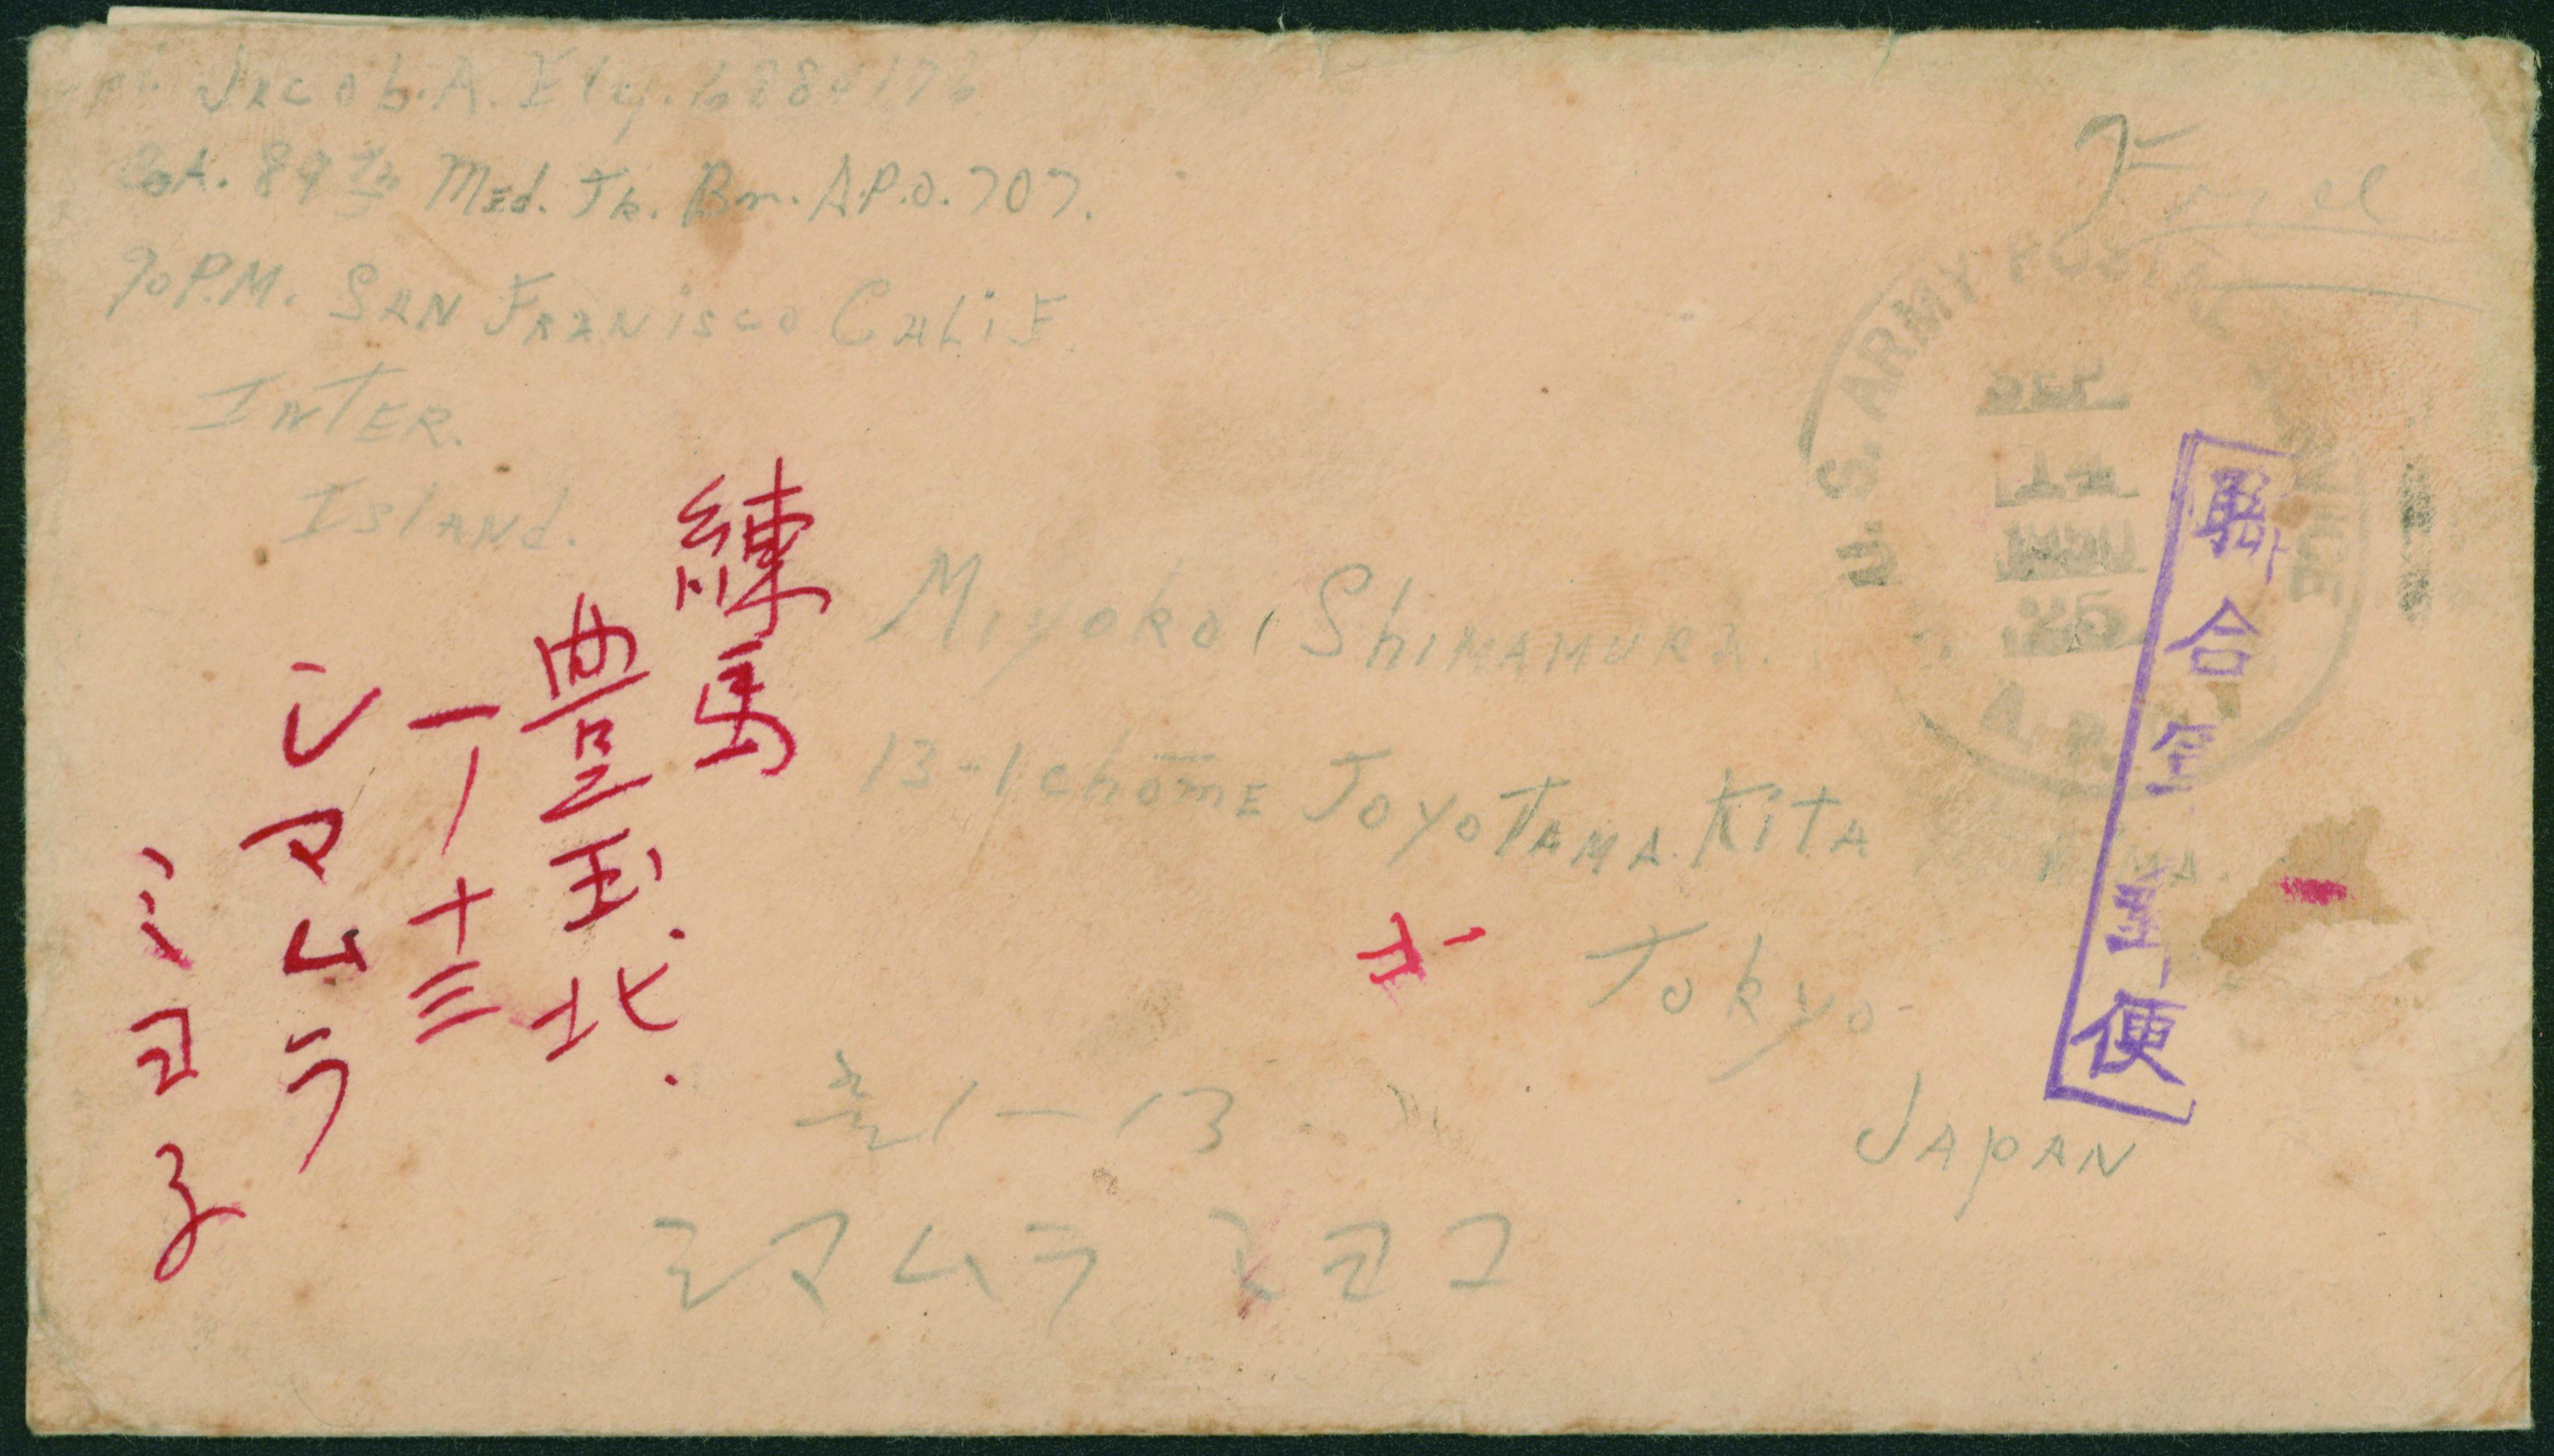 Jacob. A. Ely.
Co A. 89th Med. Tk. Bn. A.P.O. 707.
% P.M. SAN FRANCISCO CALIF.
INTER.
ISLAND.
U. S. ARMY POSTAL SERVICE
SEP
14
25
A. P.
聯合軍事郵便
Miyoko, SHIMAMURA.
13-1 chōmE TOYOTAMA. KITA
TOKYO
JAPAN
練馬
豊玉北.
一丁十三
シマムラ
ミヨ子
1-13
シマムラ ミヨコ